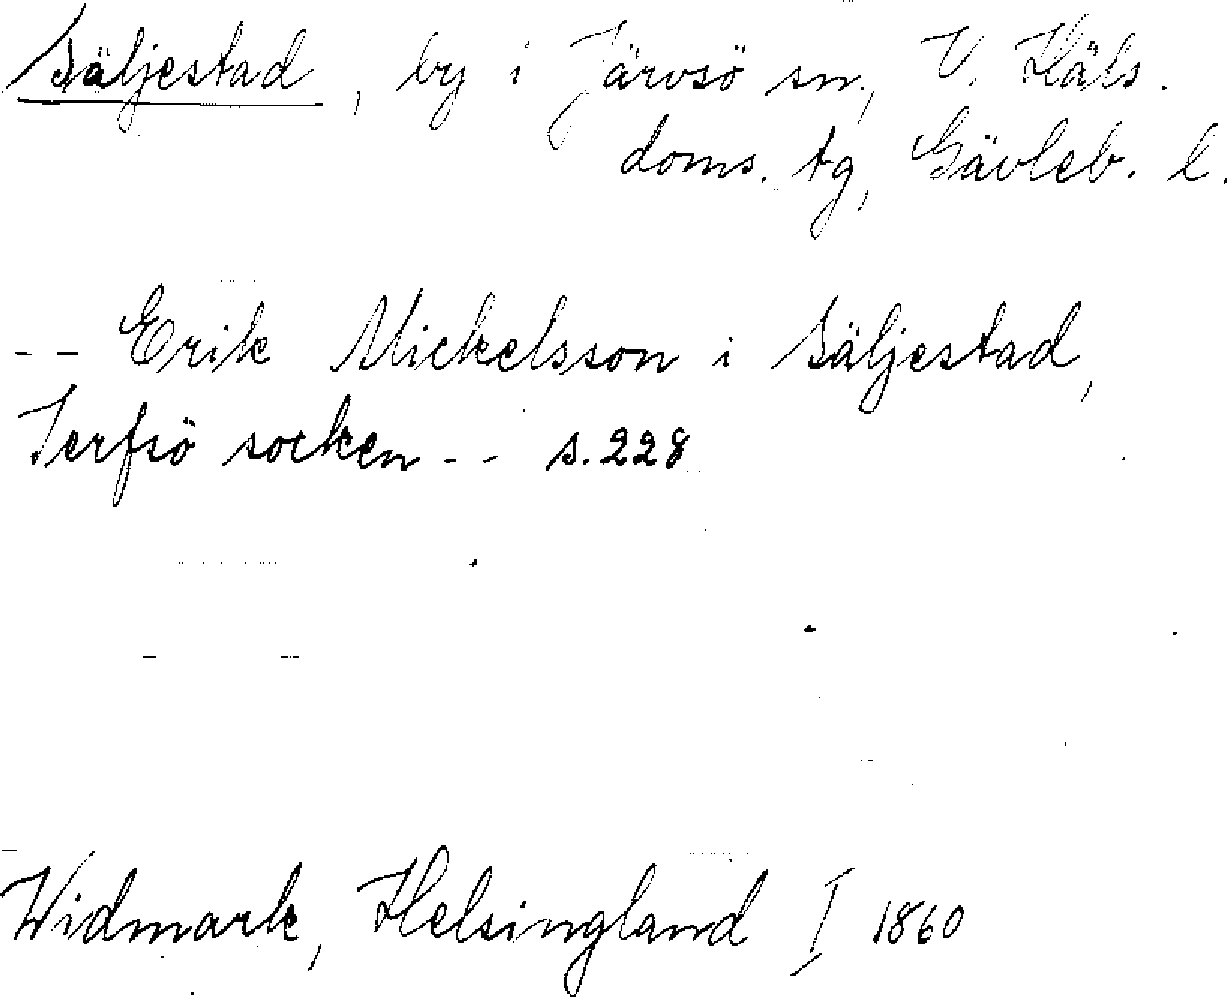 Säljestad, by i Järvsö sn, V. Häls.
doms. tg, Gävleb. l.
-- Erik Mickelsson i Säljestad,
Jerfsö socken -- s. 228
Widmark, Helsingland I 1860